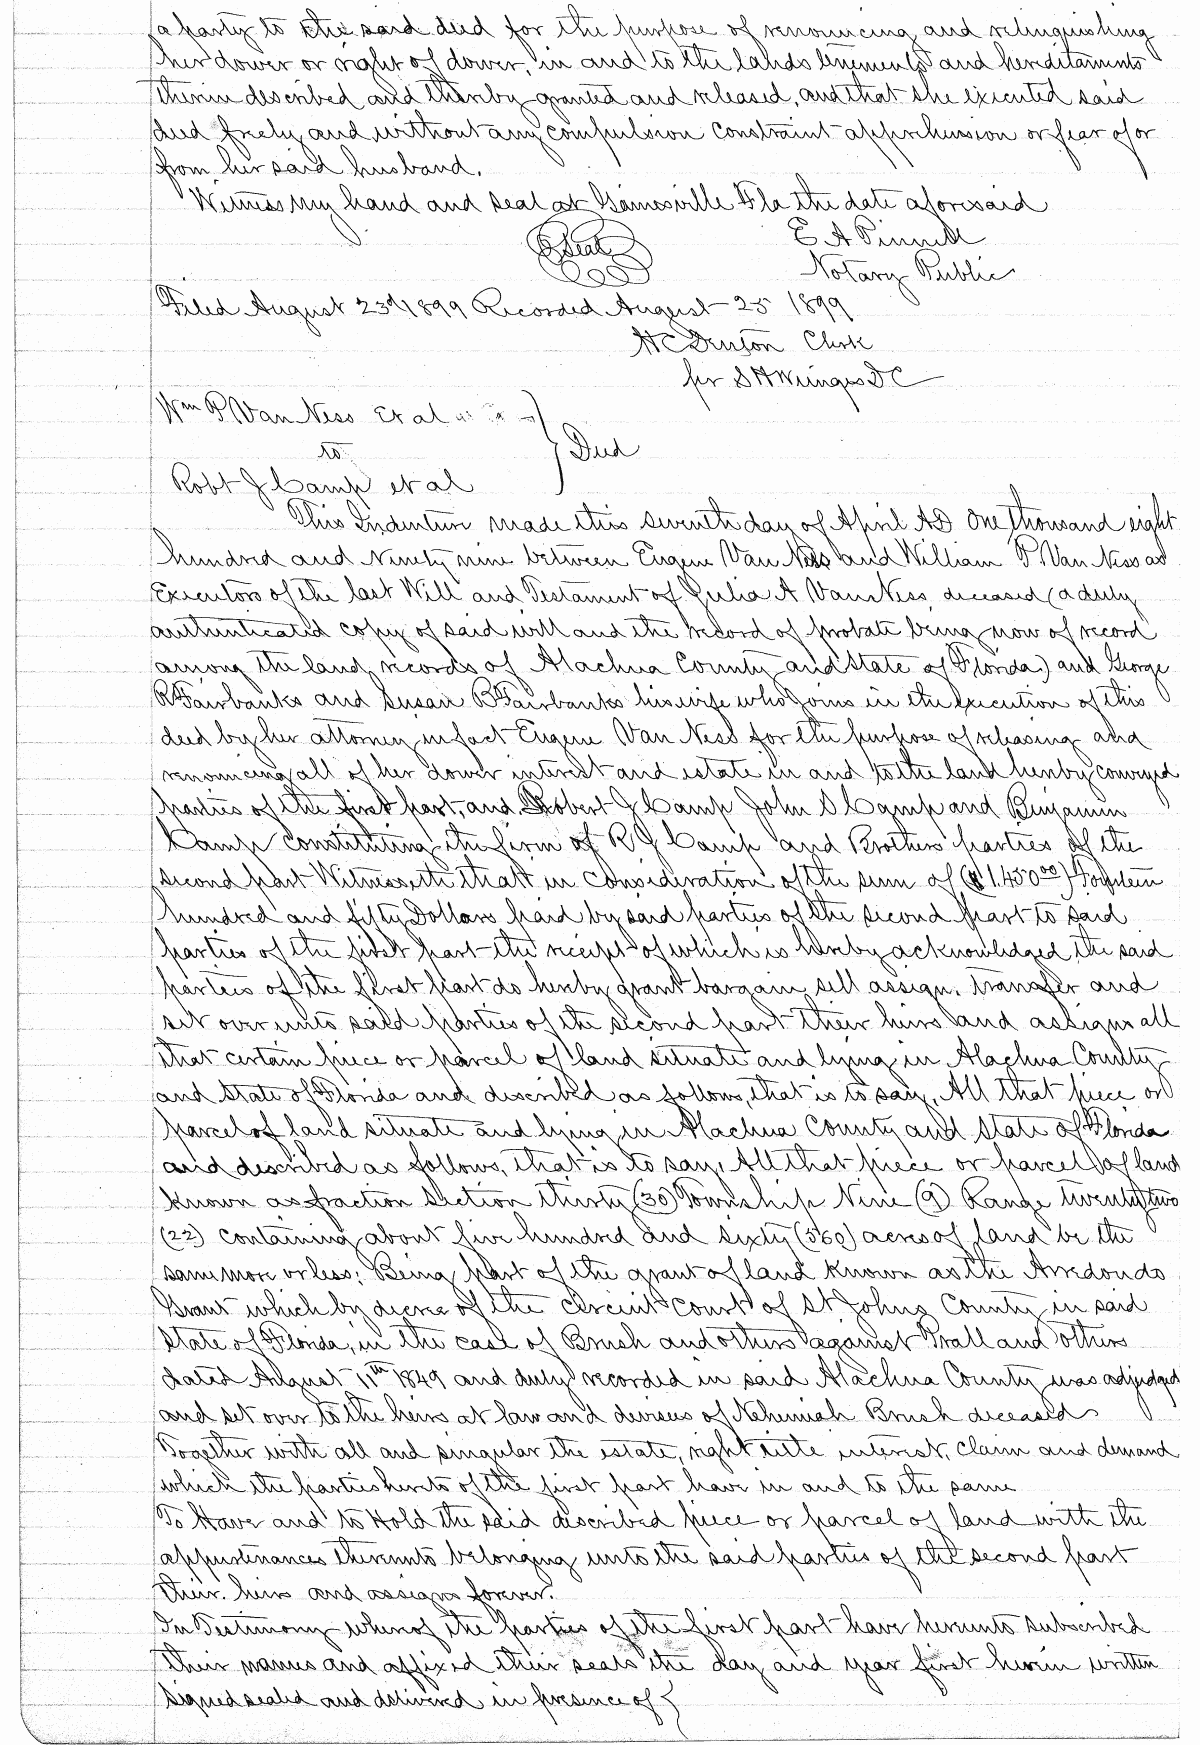 a party to the said deed for the purpose of renouncing and relinquishing
her dower or right of dower, in and to the lands tenements and hereditaments
therein described and thereby granted and released, and that she executed said
deed freely and without any compulsion constraint apprehension or fear of or
from her said husband.
Witness my hand and seal at Gainesville Fla the date aforesaid
Seal
E A Pinnell
Notary Public
Filed August 23d 1899 Recorded August 25 1899
H C Denton Clerk
per S H Wienges D C
Wm P Van Ness Et al
to
Deed
Robt J Camp et al
This Indenture made this seventh day of April AD One thousand eight
hundred and ninety nine between Eugene Van Ness and William P Van Ness as
Executors of the last Will and Testament of Julia A Van Ness deceased (a duly
authenticated copy of said will and the record of probate being now of record
among the land records of Alachua County and State of Florida) and George
R Fairbanks and Susan B Fairbanks his wife who joins in the execution of this
deed by her attorney in fact Eugene Van Ness for the purpose of releasing and
renouncing all of her dower interest and estate in and to the land hereby conveyed
parties of the first part, and Robert J Camp John S Camp and Benjamin
Camp constituting the firm of R J Camp and Brothers parties of the
second part Witnesseth that in consideration of the sum of ($1.450 00) Fourteen
hundred and fifty Dollars paid by said parties of the second part to said
parties of the first part the receipt of which is hereby acknowledged, the said
parties of the first part do hereby grant bargain sell assign, transfer and
set over unto said parties of the second part their heirs and assigns all
that certain piece or parcel of land situate and lying in Alachua County
and State of Florida and described as follows, that is to say, All that piece or
parcel of land situate and lying in Alachua County and State of Florida
and described as follows, that is to say, All that piece or parcel of land
known as fraction Section thirty (30) Township Nine (9) Range twenty two
(22) containing about five hundred and sixty (560) acres of land be the
same more or less; Being part of the grant of land known as the Arredondo
Grant which by decree of the circuit court of St Johns County in said
State of Florida, in the case of Brush and others against Prall and others
dated August 11th 1849 and duly recorded in said Alachua County was adjudged
and set over to the heirs at law and devisees of Nehemiah Brush deceased
Together with all and singular the estate, right title interest, claim and demand
which the parties hereto of the first part have in and to the same
To Have and to Hold the said described piece or parcel of land with the
appurtenances thereunto belonging unto the said parties of the second part
their heirs and assigns forever.
In Testimony whereof the parties of the first part have hereunto subscribed
their names and affixed their seals the day and year first herein written
Signed sealed and delivered in presence of }